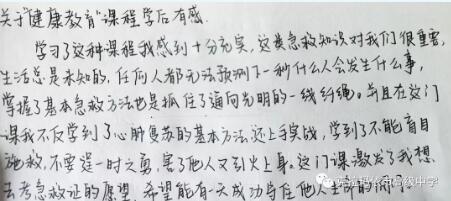 关于“健康教育”课程学后有感.
学习了这种课程我感到十分充实,这类急救知识对我们很重要,
生活总是未知的,任何人都无法预测下一秒什么人会发生什么事,
掌握了基本急救方法也是抓住了通向光明的一线绳绳。并且在这门
课我不仅学到了心肺复苏的基本方法还上手实战,学到了不能盲目
施救,不要逞一时之勇,害了他人又引火上身。这门课激发了我想
去考急救证的愿望,希望能有一天成功守住他人生命的闸门
高级中学